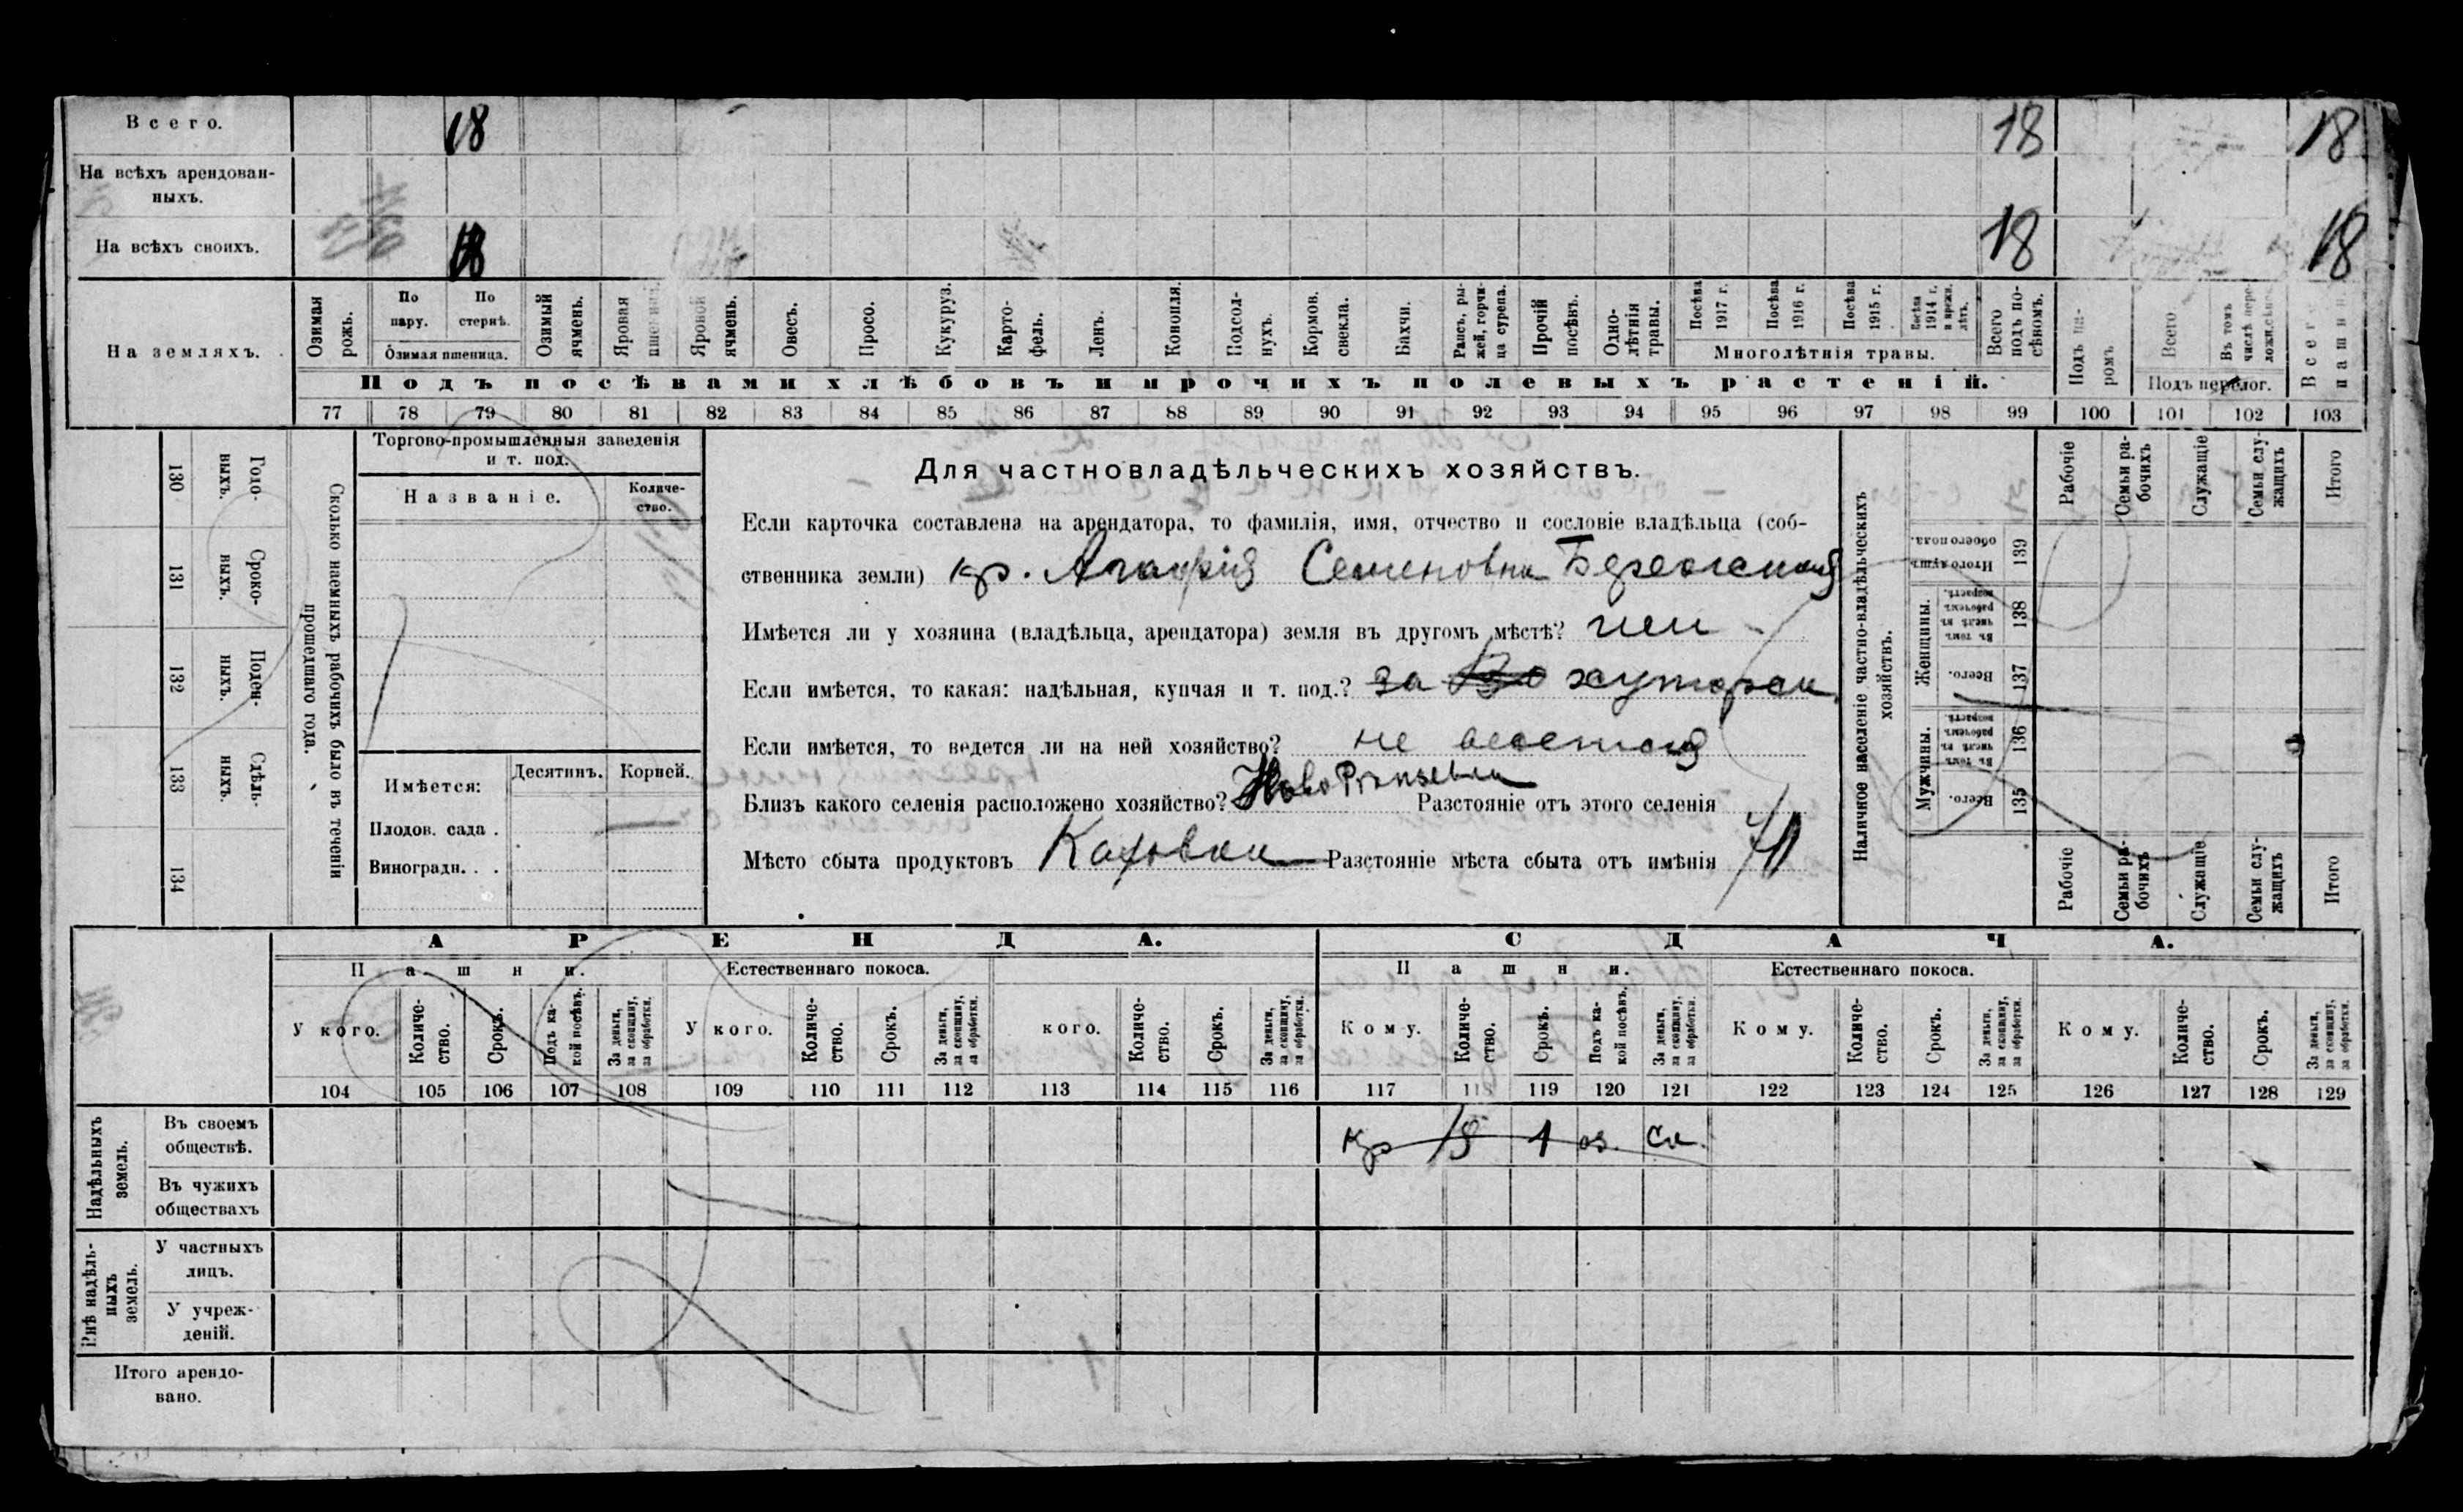 Всего. 18 18 18
На всѣхъ арендован-
ныхъ.
На всѣхъ своихъ. 18 18 18
На земляхъ.
Озимая рожь.
По пару.
По стернѣ.
Озимая пшеница.
Озимый ячмень.
Яровая пшеница.
Яровой ячмень.
Овесъ.
Просо.
Кукуруз.
Карто-
фель.
Ленъ.
Конопля.
Подсол-
нухъ.
Кормов.
свекла.
Бахчи.
Рапсъ, ры-
жей, горчи-
ца сурепа.
Прочій
посѣвъ.
Одно-
лѣтнія
травы.
Посѣва
1917 г.
Посѣва
1916 г.
Посѣва
1915 г.
Посѣва
1914 г.
и прежн.
лѣтъ.
Многолѣтнія травы.
Всего
подъ по-
сѣвомъ.
Подъ па-
ромъ
Всего
Въ томъ
числѣ пере-
лож.сѣно
Подъ перелог.
Всего
пашни.
Подъ посѣвами хлѣбовъ и прочихъ полевыхъ растеній.
77 78 79 80 81 82 83 84 85 86 87 88 89 90 91 92 93 94 95 96 97 98 99 100 101 102 103
130 Голо-
выхъ.
131 Сроко-
ныхъ.
132 Поден-
ныхъ.
133 Сдѣль-
ныхъ.
134
Сколько наемныхъ рабочихъ было въ теченіи
прошедшаго года.
Торгово-промышленныя заведенія
и т. под.
Названіе.
Количе-
ство.
Имѣется: Десятинъ. Корней.
Плодов. сада .
Виноградн. . .
Для частновладѣльческихъ хозяйствъ.
Если карточка составлена на арендатора, то фамилія, имя, отчество и сословіе владѣльца (соб-
ственника земли) кр. Агафія Семеновна
Имѣется ли у хозяина (владѣльца, арендатора) земля въ другомъ мѣстѣ?
Если имѣется, то какая: надѣльная, купчая и т. под.? за
Если имѣется, то ведется ли на ней хозяйство? не
Близъ какого селенія расположено хозяйство? Разстояніе отъ этого селенія
Мѣсто сбыта продуктовъ Каховка Разстояніе мѣста сбыта отъ имѣнія
Наличное населеніе частно-владѣльческихъ
хозяйствъ.
Итого душъ
обоего пола. 139
Женщины.
Въ томъ
числѣ въ
рабочемъ
возрастѣ. 138
Всего. 137
Мужчины.
Въ томъ
числѣ въ
рабочемъ
возрастѣ. 136
Всего. 135
Рабочіе
Семьи ра-
бочихъ
Служащіе
Семьи слу-
жащихъ
Итого
Рабочіе
Семьи ра-
бочихъ
Служащіе
Семьи слу-
жащихъ
Итого
АРЕНДА. СДАЧА.
Пашни. Естественнаго покоса. Пашни. Естественнаго покоса.
У кого.
Количе-
ство.
Срокъ.
Подъ ка-
кой посѣвъ.
За деньги,
за скопщину,
за обработки.
У кого.
Количе-
ство.
Срокъ.
За деньги,
за скопщину,
за обработки.
кого.
Количе-
ство.
Срокъ.
За деньги,
за скопщину,
за обработки.
Кому.
Количе-
ство.
Срокъ.
Подъ ка-
кой посѣвъ.
За деньги,
за скопщину,
за обработки.
Кому.
Количе-
ство.
Срокъ.
За деньги,
за скопщину,
за обработки.
Кому.
Количе-
ство.
Срокъ.
За деньги,
за скопщину,
за обработки.
104 105 106 107 108 109 110 111 112 113 114 115 116 117 118 119 120 121 122 123 124 125 126 127 128 129
Надѣльныхъ
земель.
Въ своемъ
обществѣ. кр 18 1 оз. ск.
Въ чужихъ
обществахъ
Внѣ надѣль-
ныхъ
земель.
У частныхъ
лицъ.
У учреж-
деній.
Итого арендо-
вано.